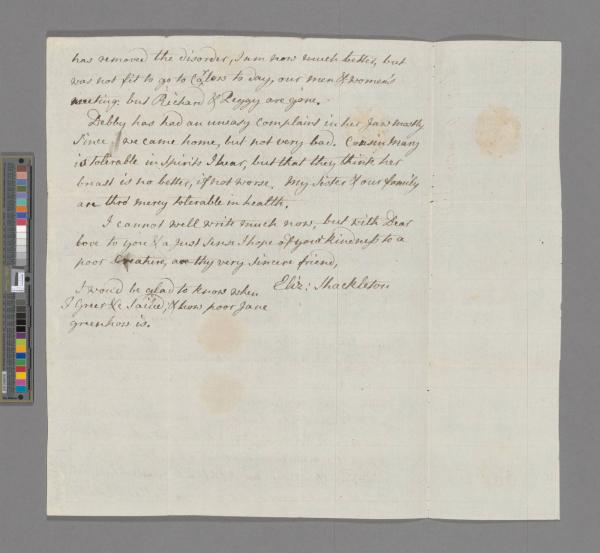 has removed the disorder, I am now much better, but
was not fit to go to to day, our men & women's
meeting. but Richard & Peggy are gone.
Debby has had an uneasy complaint in her Jaw mostly
Since we came home, but not very bad. Cousin Mary
is tolerable in Spirits I hear, but that they think her
breast is no better, if not worse. My Sister & our family
are thro' mercy tolerable in health.
I cannot well write much now, but with Dear
love to you & a just Sense I hope of your kindness to a
poor Creature, am thy very Sincere friend,
Eliz: Shackleton
I would be glad to know when
J Greer &c Sailed, & how poor Jane
greenhow is.